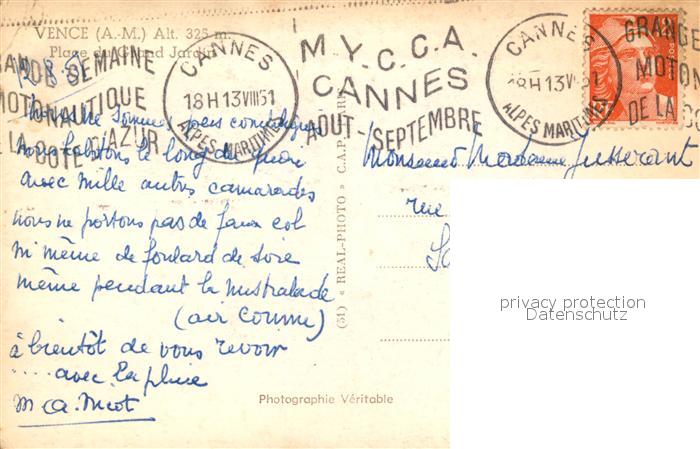 VENCE (A.-M.) Alt. 325 m.
Place du Grand Jardin
12.8.51
GRANDE SEMAINE
MOTONAUTIQUE
DE LA CÔTE D'AZUR
CANNES
18H 13 VIII 51
ALPES MARITIMES
M.Y.C.C.A.
CANNES
AOUT - SEPTEMBRE
CANNES
18H 13 VIII 51
ALPES MARITIMES
GRANDE
MOTONA
DE LA CO
Monsieur Madame Jusserant
rue
nous sommes
le long du
avec mille autres camarades
nous ne portons pas de faux col
ni même de foulard de soie
même pendant la
(air connu)
à bientôt de vous revoir
.... avec la pluie
(51) « REAL-PHOTO » C.A.P. PARIS
Photographie Véritable
privacy protection
Datenschutz